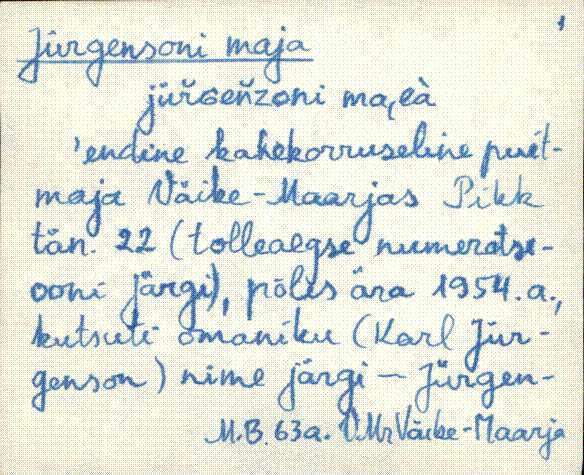 1
Jürgensoni maja
jürgenzoni ma,eà
'endine kahekorruseline puit-
maja Väike-Maarjas Pikk
tän. 22 (tolleaegse numeratsi-
ooni järgi), põles ära 1954.a.,
kutsuti omaniku (Karl Jür-
genson) nime järgi – Jürgen-
M.B. 63a. V.Mr Väike-Maarja